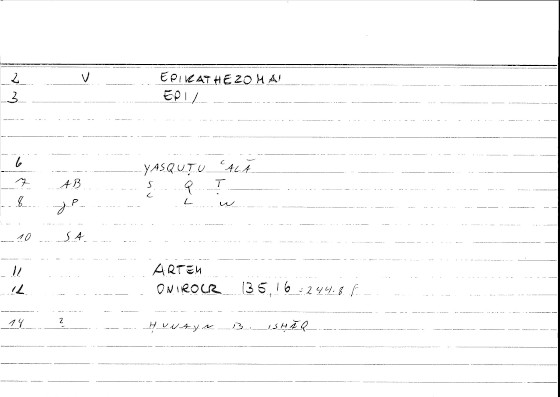 2 V EPIKATHEZOMAI
3 EPI/
6 YASQUṬU ʿALĀ
7 AB S Q Ṭ
8 gP ʿ L W
10 SA
11 ARTEM
12 ONIROCR 135,16 = 244.8 f
14 ? ḤUNAYN B. ISḤĀQ